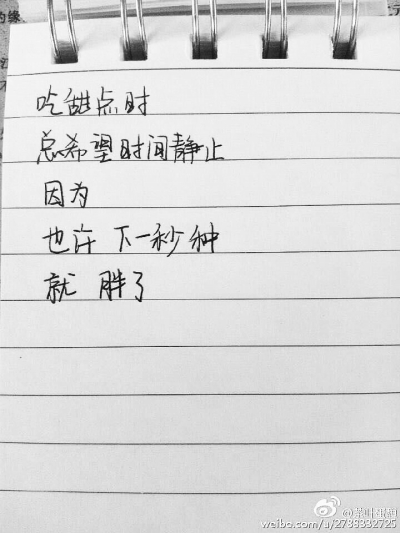 吃甜点时
总希望时间静止
因为
也许 下一秒种
就 胖了
weibo.com/u/2738332725